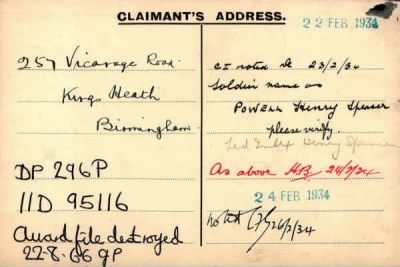 CLAIMANT'S ADDRESS.
22 FEB 1934
257 Vicarage Road
Kings Heath
Birmingham
DP 296P
11D 95116
Award file destroyed
22-8-06 GP
noted 23/2/34
Soldier name as
Powell Henry Spenser
please verify.
Led Index Henry
As above HB 24/2/34
24 FEB 1934
noted 26/2/34